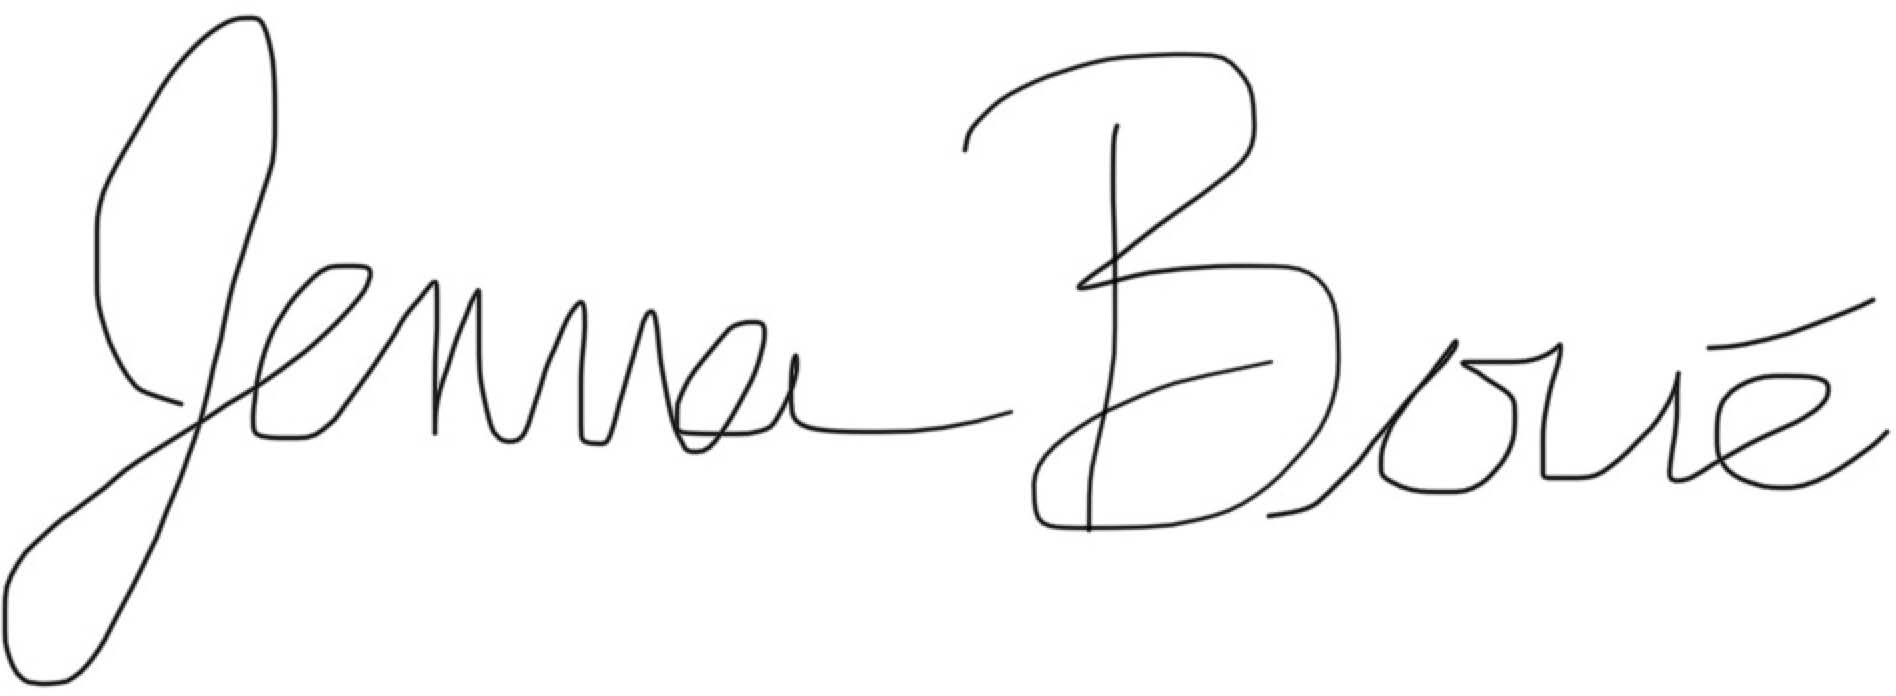 Jenna Boué